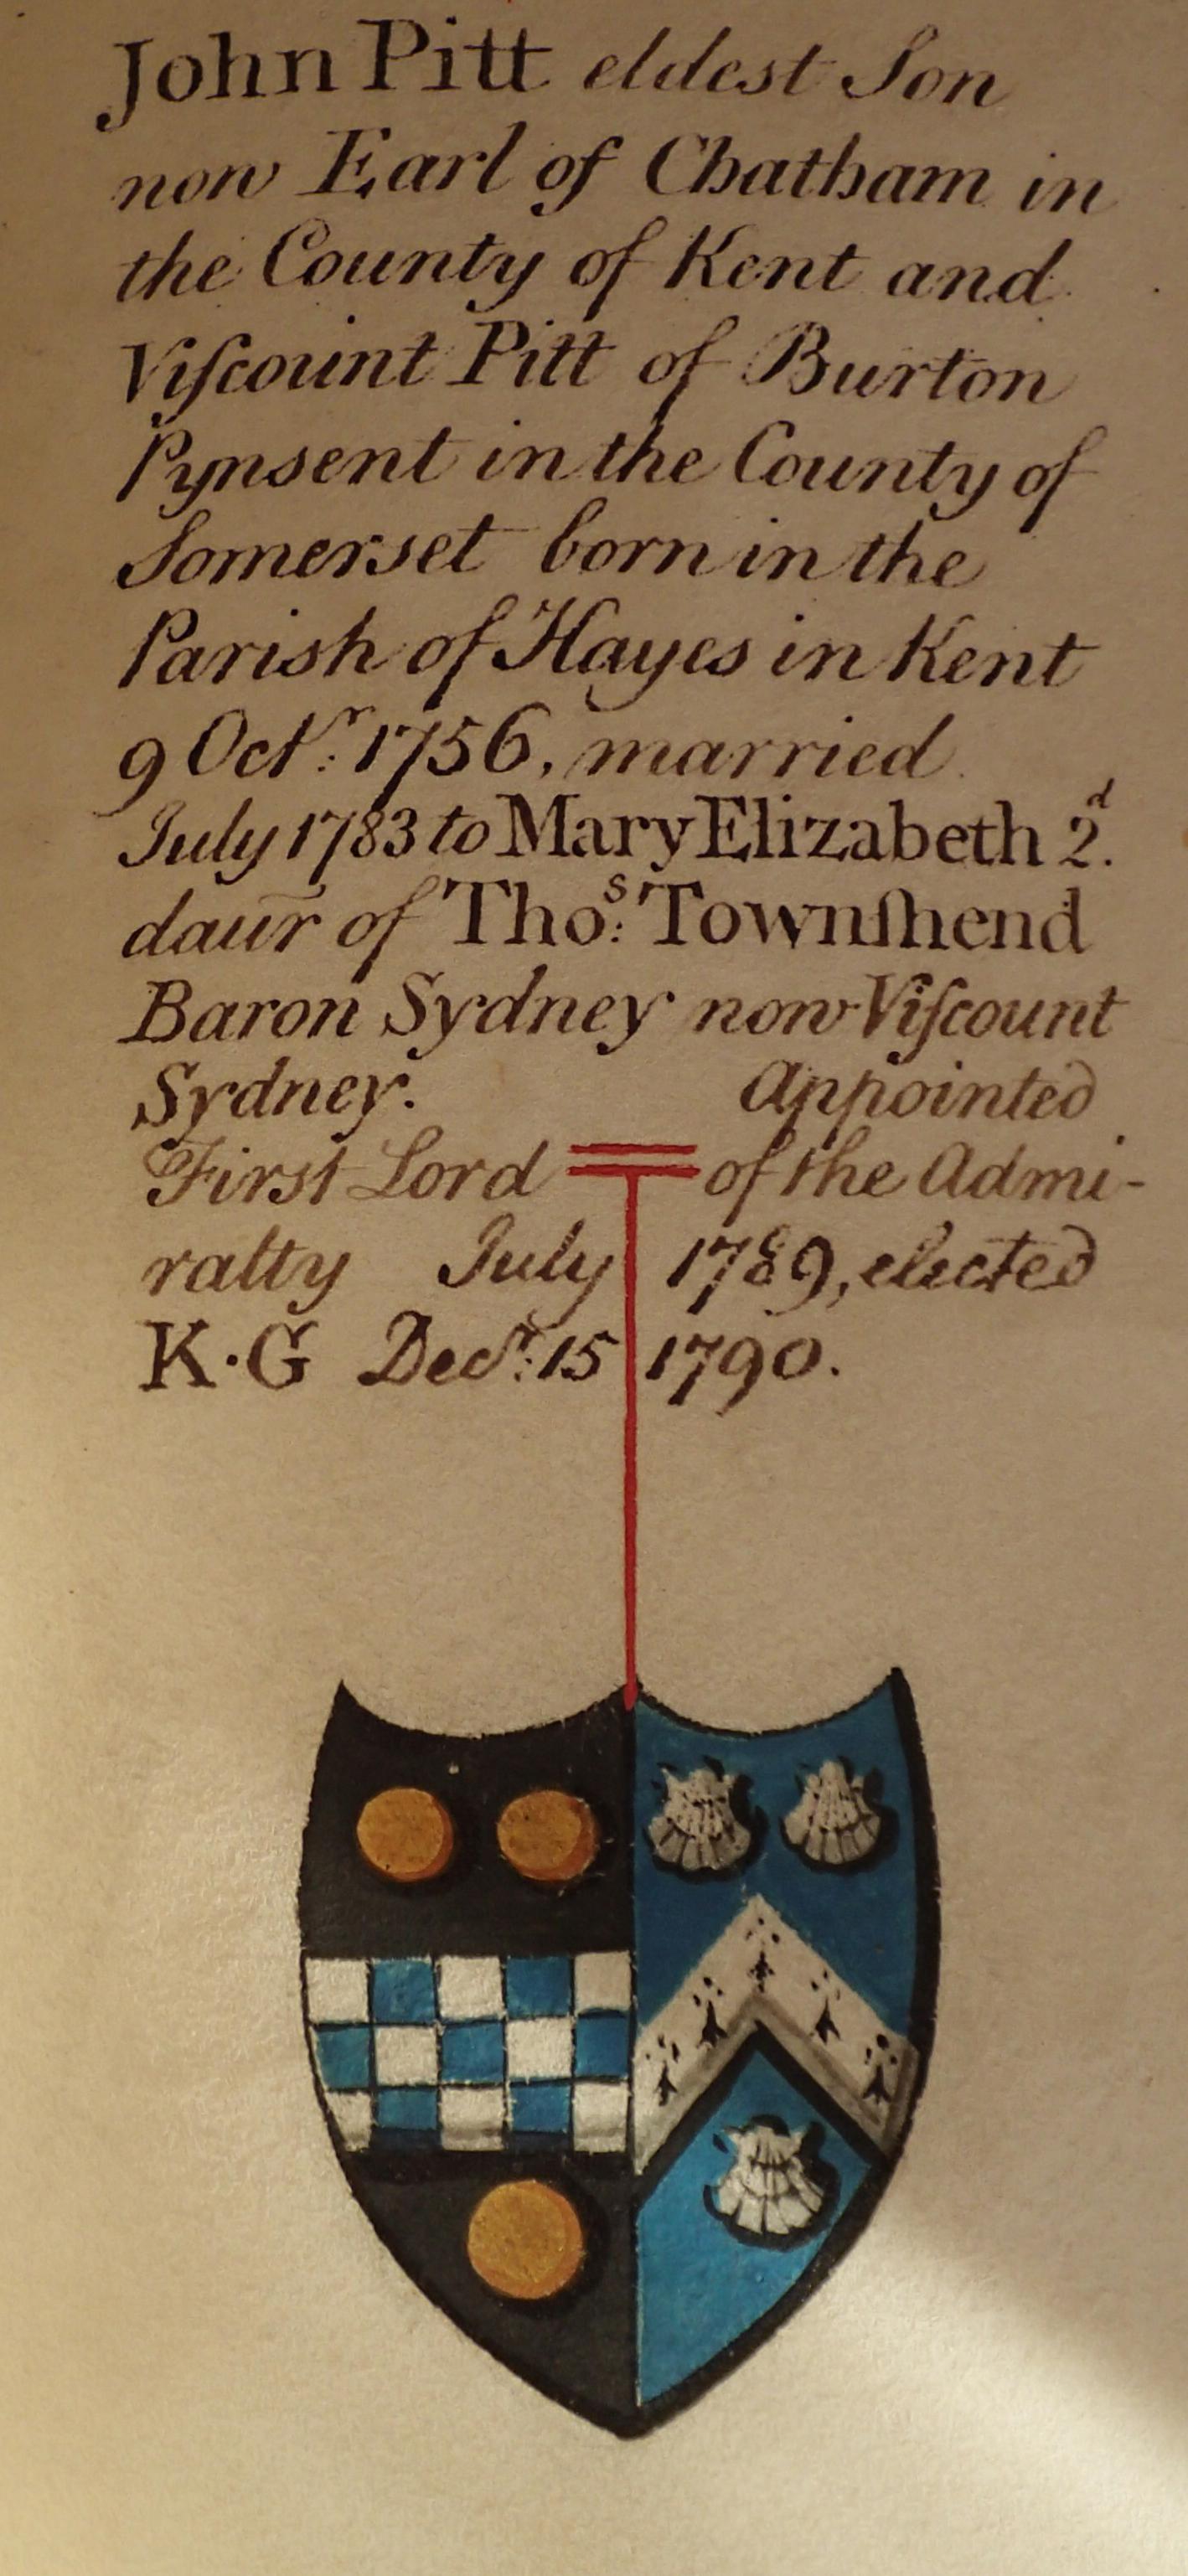 John Pitt eldest Son
now Earl of Chatham in
the County of Kent and
Viſcount Pitt of Burton
Pynsent in the County of
Somerset born in the
Parish of Hayes in Kent
9 Octr: 1756, married
July 1783 to Mary Elizabeth 2d.
daur̃ of Thos: Townſhend
Baron Sydney now Viſcount
Sydney. Appointed
First Lord of the Admi-
ralty July 1789, elected
K·G Decr: 15 1790.